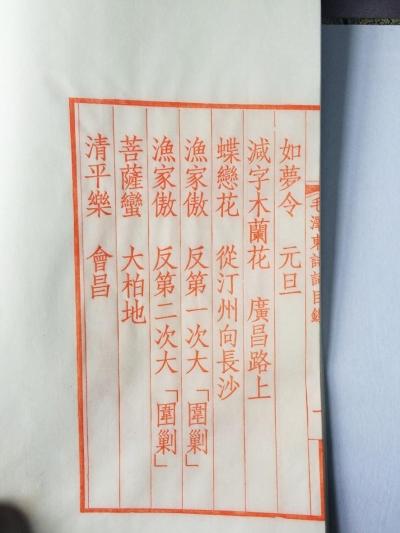 毛澤東詩詞目錄
如夢令 元旦
減字木蘭花 廣昌路上
蝶戀花 從汀州向長沙
漁家傲 反第一次大「圍剿」
漁家傲 反第二次大「圍剿」
菩薩蠻 大柏地
清平樂 會昌